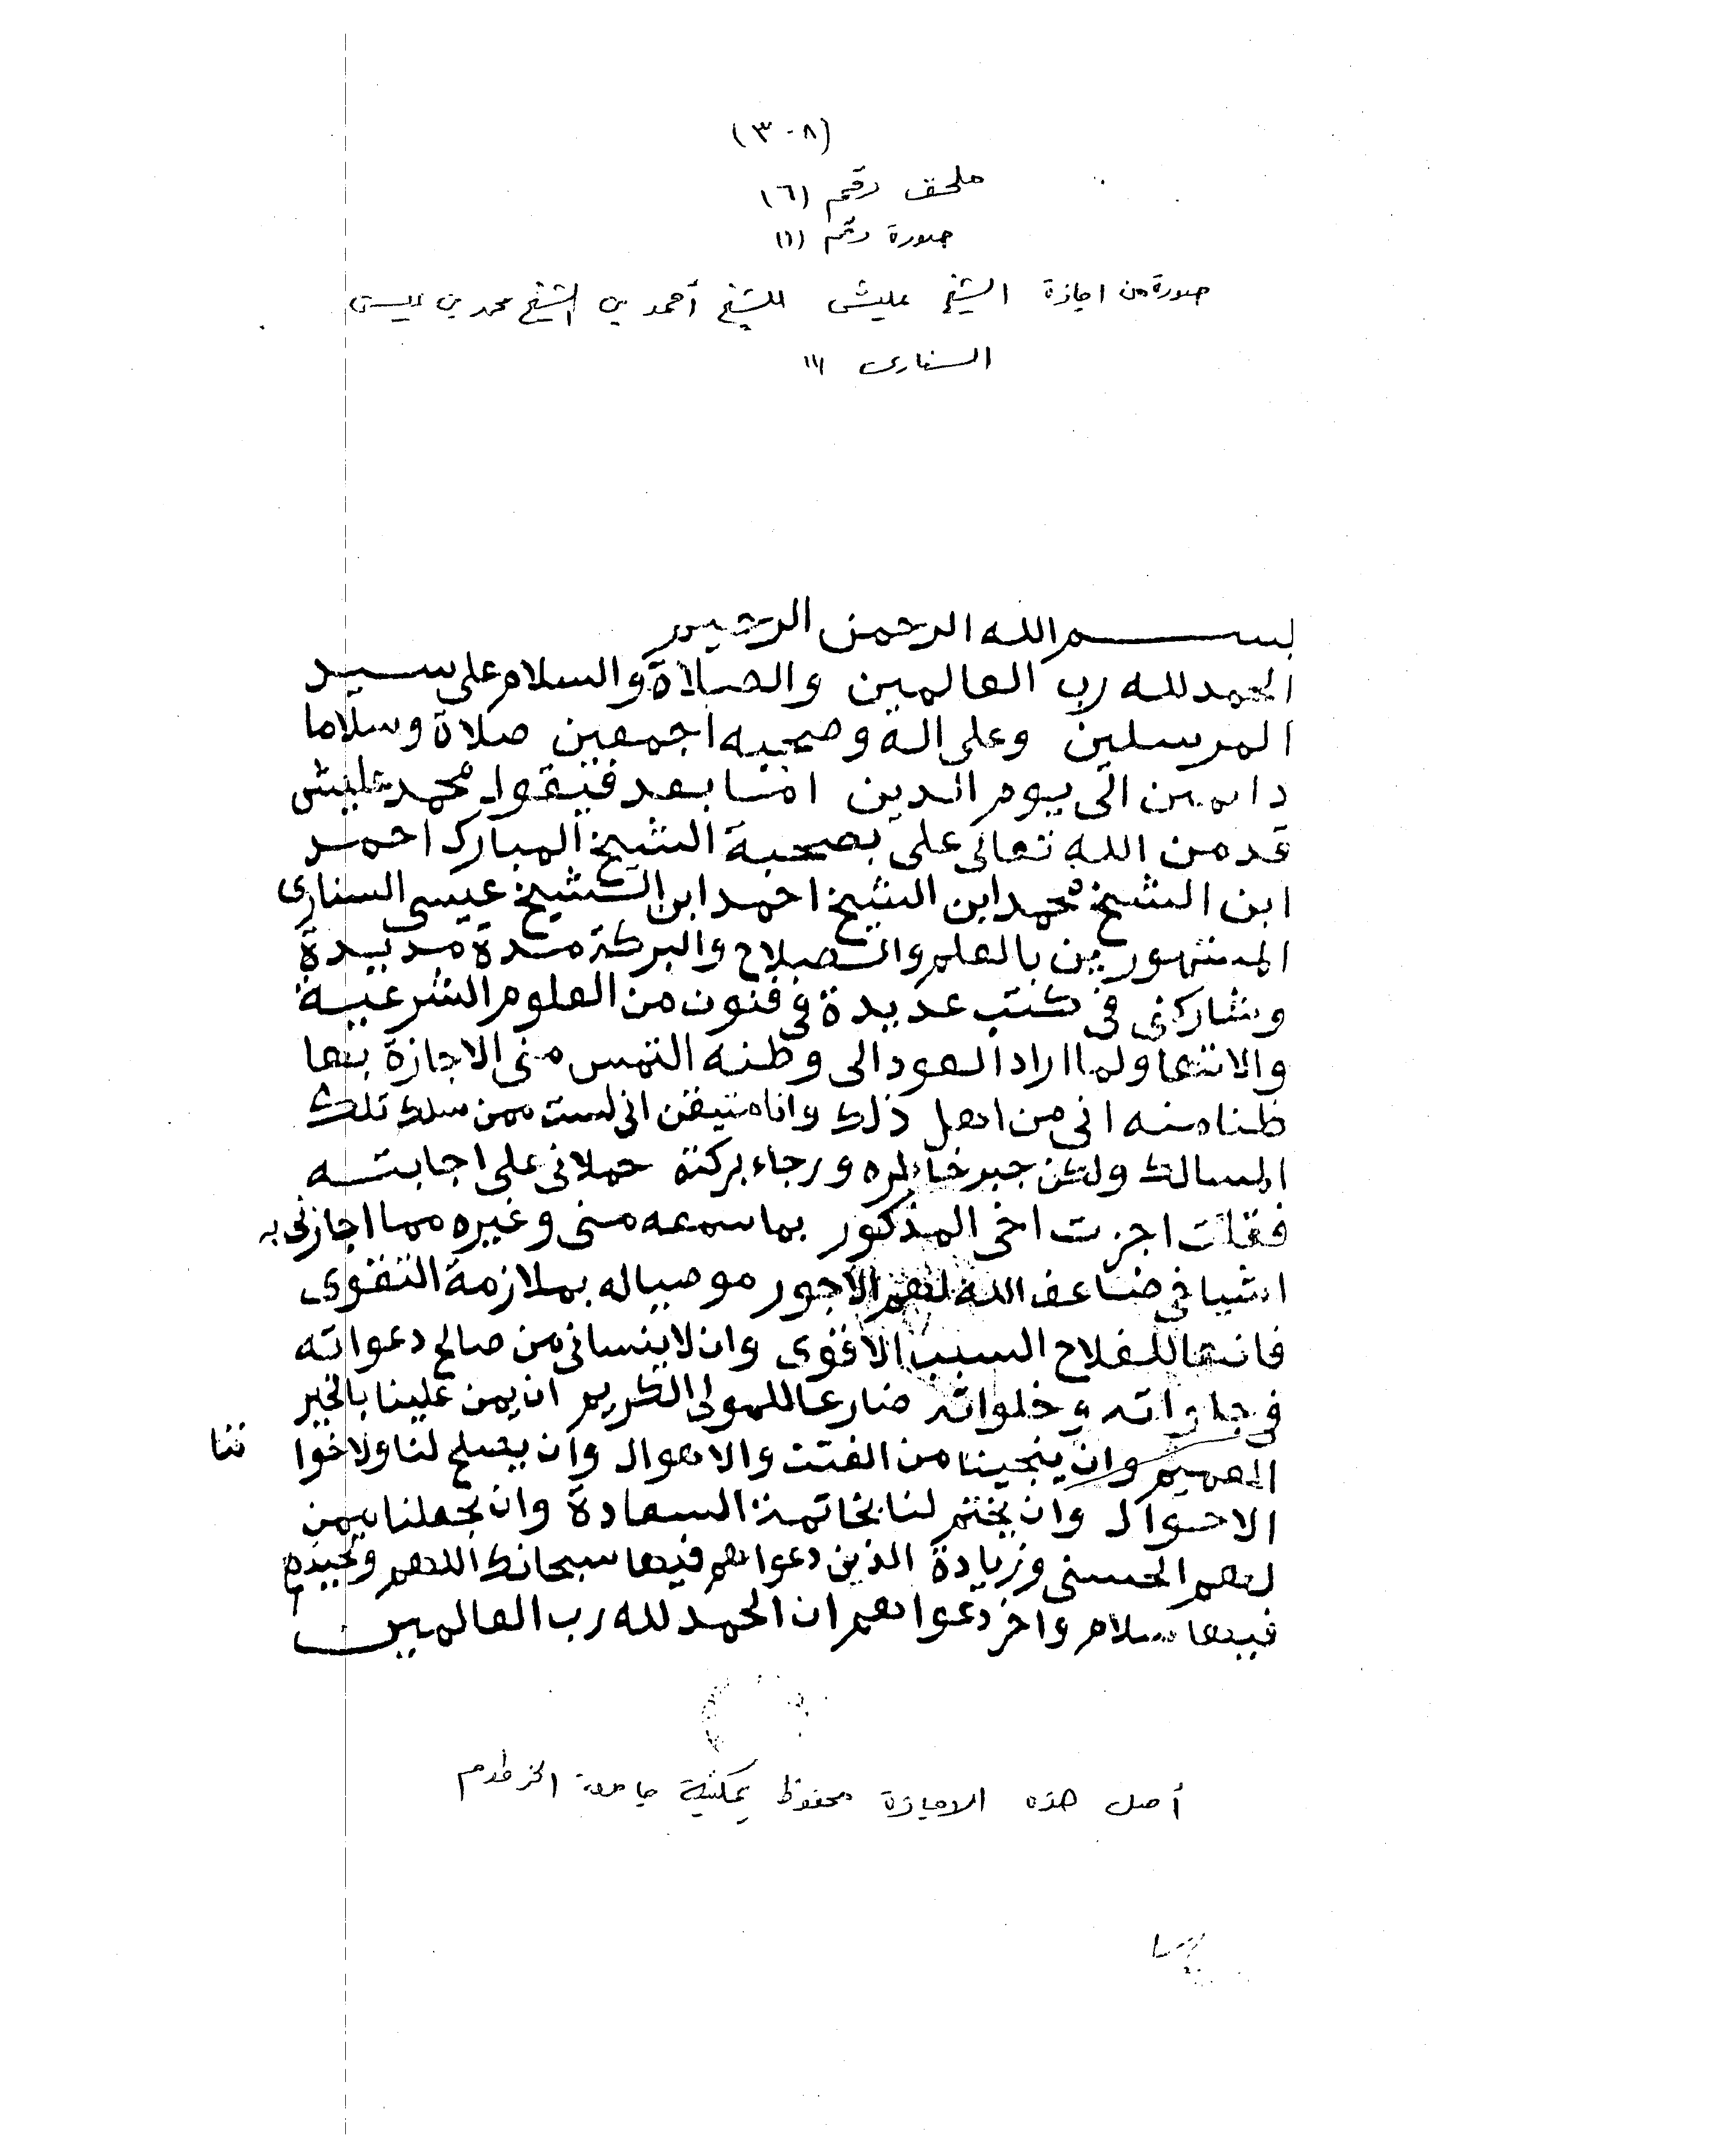 (٣٠٨)
ملحق رقم (٦)
صورة رقم (١)
صورة من اجازة الشيخ عليش للشيخ أحمد بن الشيخ محمد بن عيسى
السنارى (١)
بسم الله الرحمن الرحيم
الحمد لله رب العالمين والصلاة والسلام على سيد
المرسلين وعلى اله وصحبه اجمعين صلاة وسلاما
دايمين الى يوم الدين امّا بعد فيقول محمد عليش
قد من الله تعالى على بصحبة الشيخ المبارك احمد
ابن الشيخ محمد ابن الشيخ احمد ابن الشيخ عيسى السنارى
المشهورين بالعلم والصلاح والبركة مدة مديدة
وشاركنى فى كتب عديدة فى فنون من العلوم الشرعية
والاتها ولما اراد العود الى وطنه التمس منى الاجازة بها
ظنا منه انى من اهل ذلك وانا متيقن انى لست ممن سلك تلك
المسالك ولكن جبر خاطره ورجاء بركته حملانى على اجابته
فقلت اجزت اخى المذكور بما سمعه منى وغيره مما اجازنى به
اشياخى ضاعف الله لهم الاجور موصيا له بملازمة التقوى
فانها للفلاح السبب الاقوى وان لا ينسانى من صالح دعواته
فى جلواته وخلواته ضارعا للمولى الكريم ان يمن علينا بالخير
العميم وان ينجينا من الفتن والاهوال وان يصلح لنا ولاخواننا
الاحوال وان يختم لنا بخاتمة السعادة وان يجعلنا ممن
لهم الحسنى وزيادة الذين دعواهم فيها سبحانك اللهم وتحيتهم
فيها سلام واخر دعواهم ان الحمد لله رب العالمين
أصل هذه الاجازة محفوظ بمكتبة جامعة الخرطوم